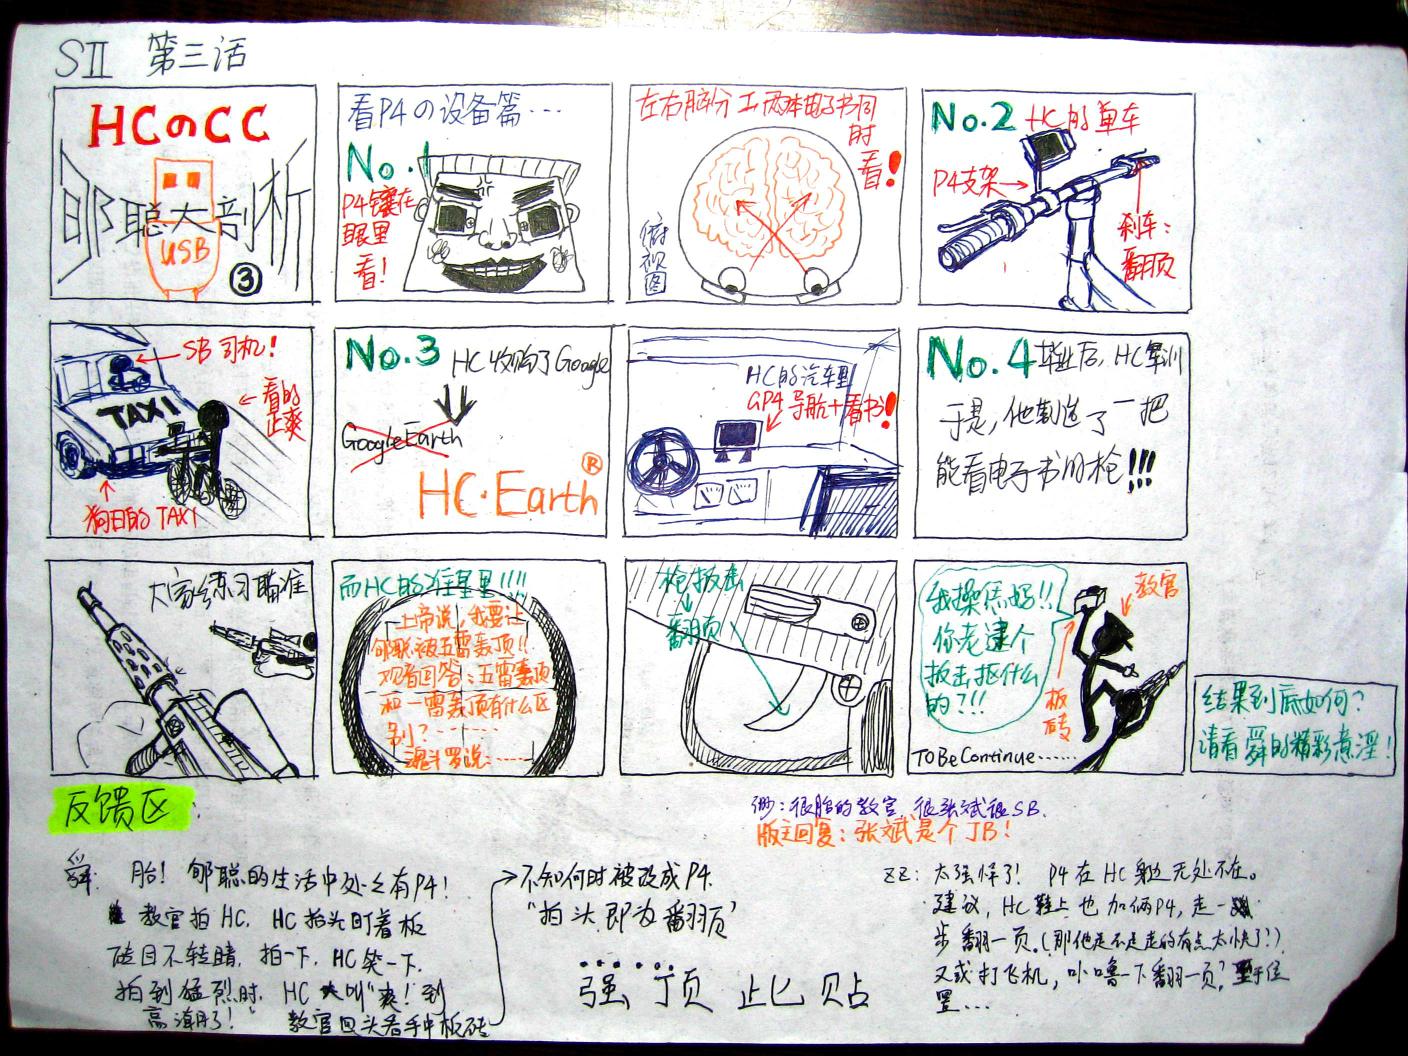 SII 第三话
HCのCC
郇聪大剖析
USB
③
看P4の设备篇…
No.1
P4镶在
眼里
看!
左右脑分工两本电子书同
时
看!
俯视图
No.2 HC的单车
P4支架→
刹车:
翻页
SB 司机!
看的
正爽
TAXI
狗日的 TAXI
No.3 HC收购了Google
GoogleEarth
HC·Earth®
HC的汽车里
GP4 导航+看书!
No.4 毕业后,HC军训
于是,他制造了一把
能看电子书的枪!!!
大家练习瞄准
而HC的准星里!!!!
上帝说,我要让
郇聪被五雷轰顶!!
观看回答:五雷轰顶
和一雷轰顶有什么区
别?……
魂斗罗说……
枪扳击
↓
翻页
我操焦妈!!
你老逮个
扳击抠什么
的?!!
教官
板砖
To Be Continue……
结果到底如何?
请看舜的精彩意淫!
反馈区
很胎的教官,很张斌很SB.
版主回复:张斌是个JB!
舜: 胎! 郇聪的生活中处处有P4!
教官拍HC, HC抬头盯着板
砖目不转睛, 拍一下, HC笑一下.
拍到猛烈时, HC大叫"爽!到
高潮了!" 教官回头看手中板砖
→不知何时被改成P4.
"拍头即为翻页"
……
强顶此贴
ZZ: 太强悍了! P4在HC身边无处不在。
建议,HC鞋上也加俩P4,走一
步翻一页.(那他是不是走的有点太快了?)
又或打飞机,噜一下翻一页?
置…